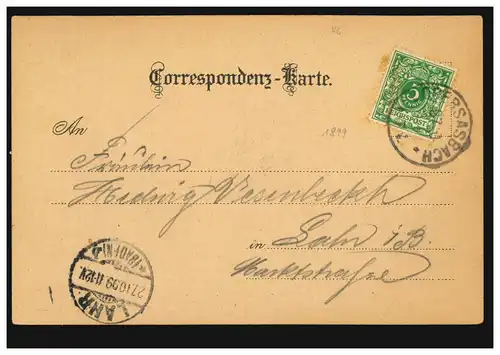 VG
Correspondenz-Karte.
5
PFENNIG
REICHSPOST
OBERSASBACH
1899
An
Fräulein
Hedwig
in Lahr i/B.
Marktstraße
(BADEN)
27.10.99.11-12V.
LAHR